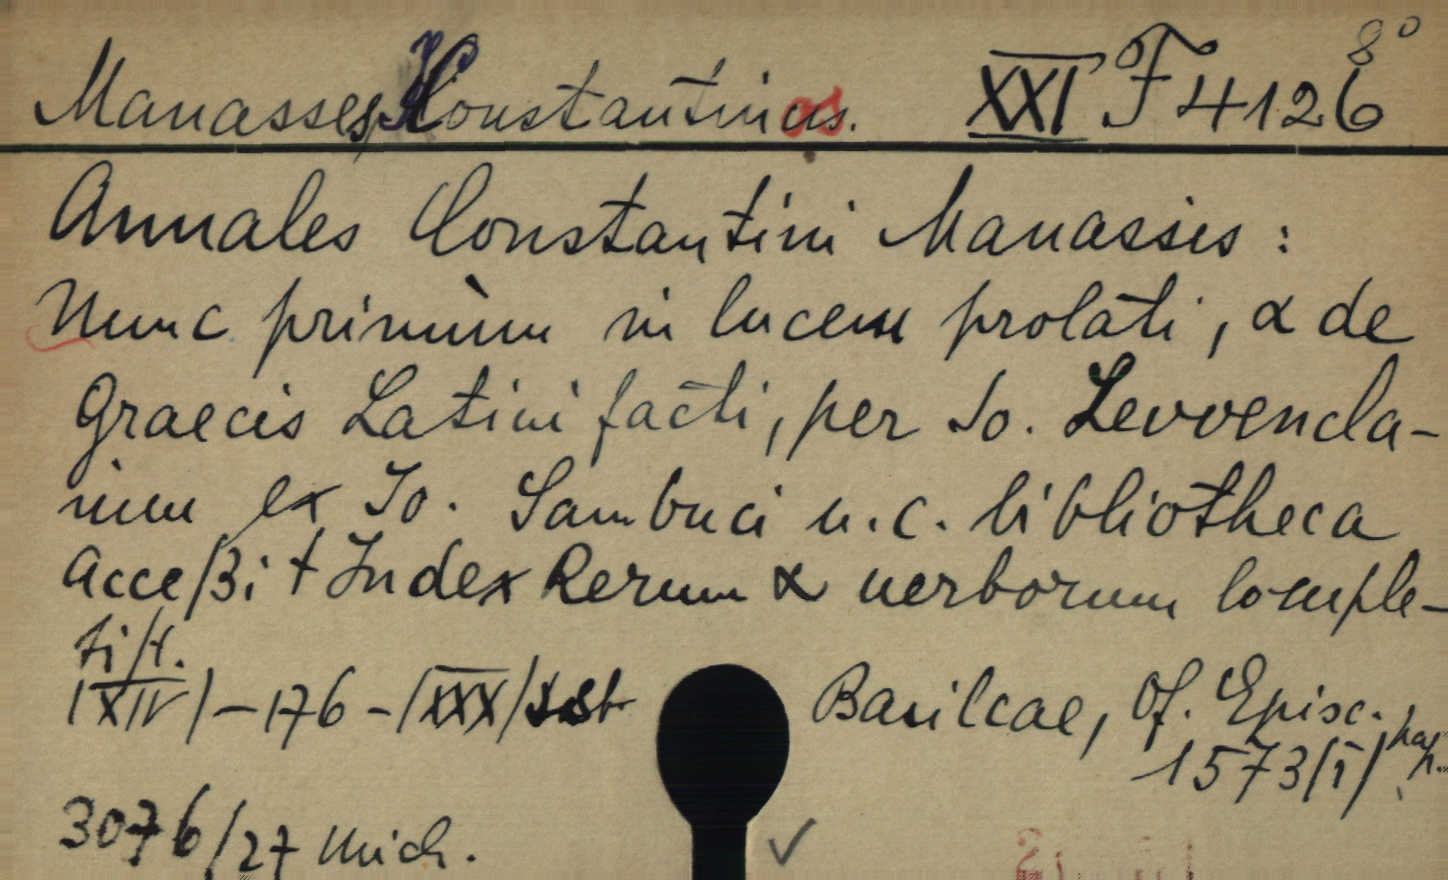 Manasses, Konstantinos. XXI F 4126 8°
Annales Constantini Manassis:
Nunc primùm in lucem prolati, & de
Graecis Latini facti, per Io. Levvencla-
ium ex Io. Sambuci u.c. bibliotheca
Acceßit Index Rerum & uerborum locuple-
tiss.
|XIV|-176-|XXX| Basileae, Of. Episc.
1573/i/
3076/27 Mich.